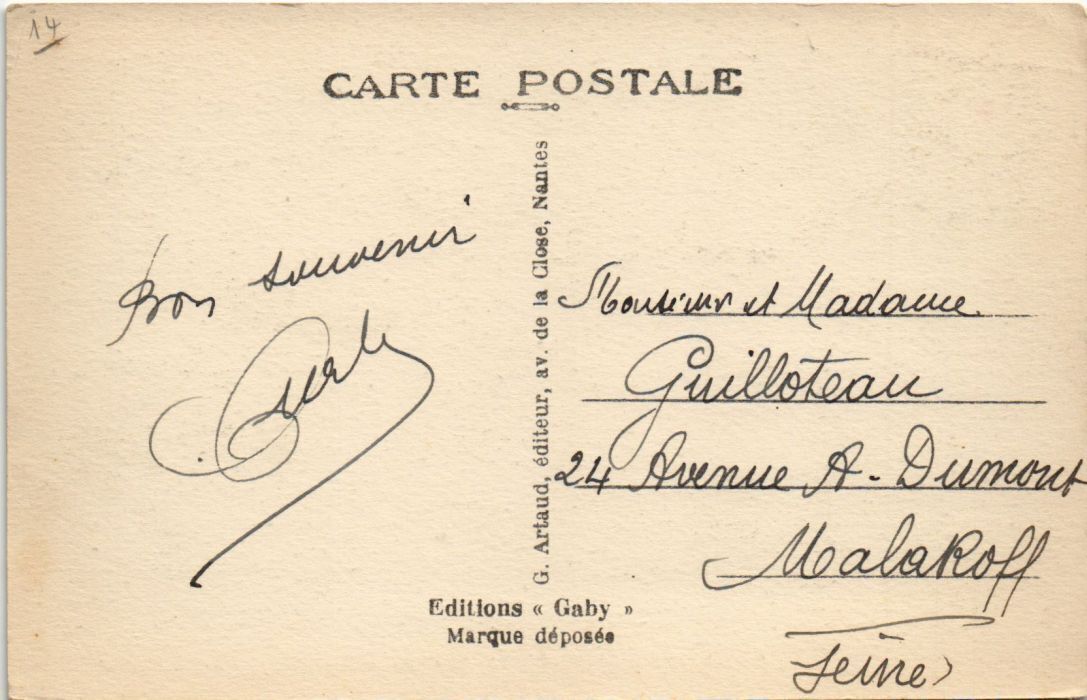 14
CARTE POSTALE
Bon souvenir
G. Artaud, éditeur, av. de la Close, Nantes
Monsieur et Madame
Guilloteau
24 Avenue A. Dumont
Malakoff
Seine)
Editions « Gaby »
Marque déposée